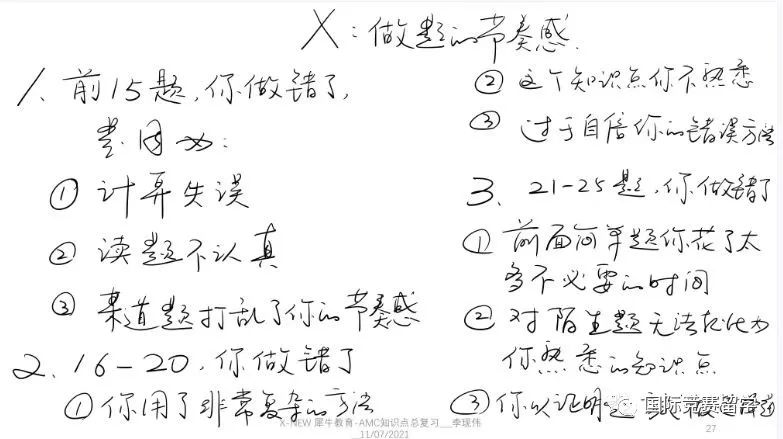 X：做题的节奏感.
1、前15题，你做错了，
是因为：
① 计算失误
② 读题不认真
③ 某道题打乱了你的节奏感
2、16-20，你做错了
① 你用了非常复杂的方法
② 这个知识点你不熟悉
③ 过于自信你的错误方法
3、21-25题，你做错了
① 前面简单题你花了太
多不必要的时间
② 对陌生题无法转化为
你熟悉的知识点
③ 你以证明题
国际竞赛留学
X-NEW 犀牛教育-AMC知识点总复习__李现伟
__11/07/2021
27